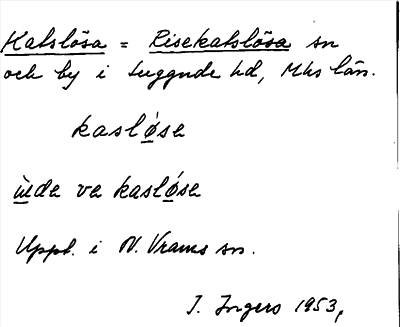 Katslösa = Risekatslösa sn
och by i Luggude hd, Mhs län.
kasløse
inde va kasløse
Uppt. i N. Vrams sn.
I. Ingers 1953,